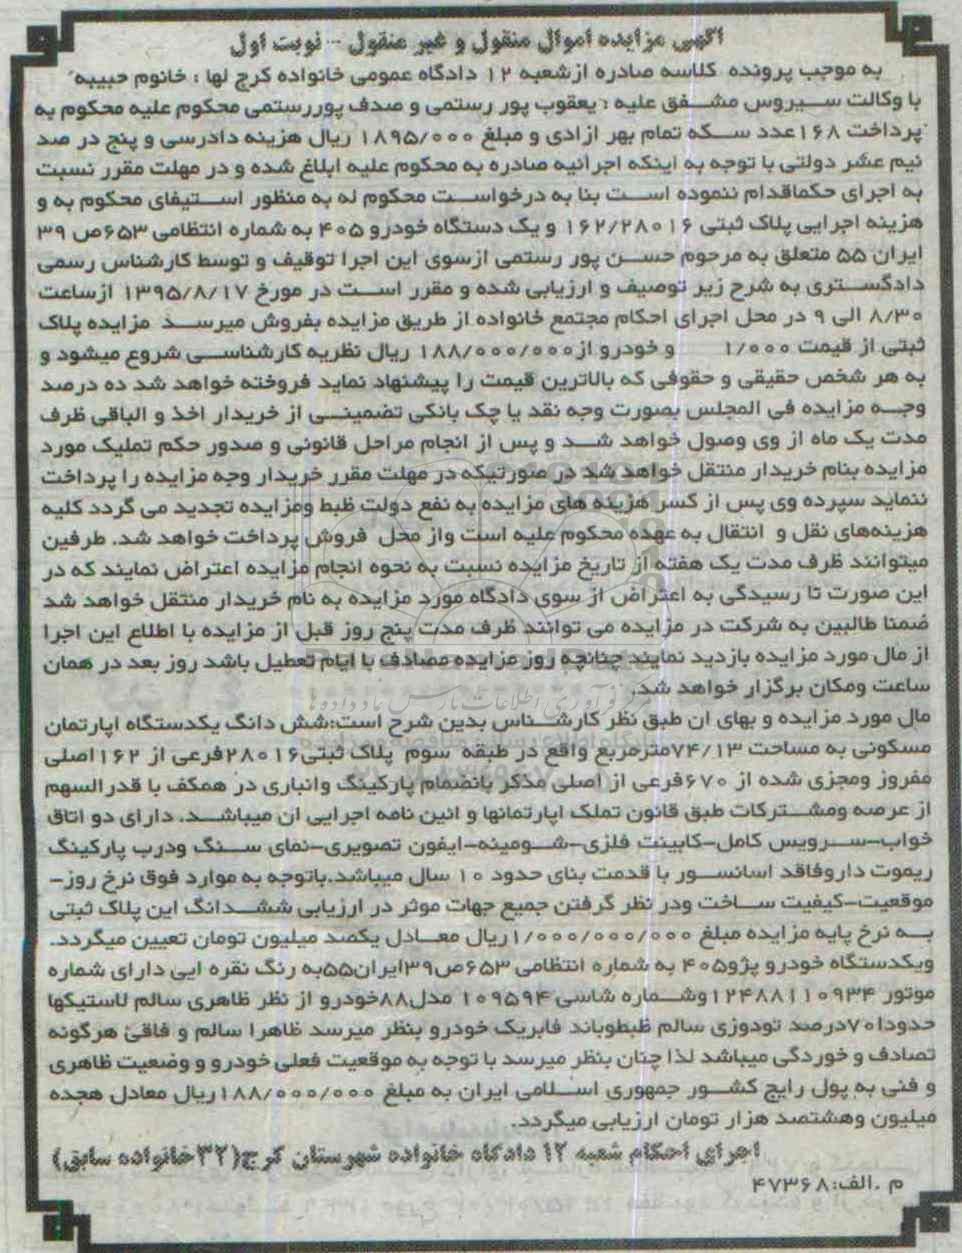 اگهی مزایده اموال منقول و غیر منقول - نوبت اول
به موجب پرونده کلاسه صادره ازشعبه ۱۲ دادگاه عمومی خانواده کرج لها : خانوم حبیبه
با وکالت سیروس مشفق علیه : یعقوب پور رستمی و صدف پوررستمی محکوم علیه محکوم به
پرداخت ۱۶۸عدد سکه تمام بهر ازادی و مبلغ ۱۸۹۵/۰۰۰ ریال هزینه دادرسی و پنج در صد
نیم عشر دولتی با توجه به اینکه اجرائیه صادره به محکوم علیه ابلاغ شده و در مهلت مقرر نسبت
به اجرای حکماقدام ننموده است بنا به درخواست محکوم له به منظور استیفای محکوم به و
هزینه اجرایی پلاک ثبتی ۱۶۲/۲۸۰۱۶ و یک دستگاه خودرو ۴۰۵ به شماره انتظامی ۶۵۳ص ۳۹
ایران ۵۵ متعلق به مرحوم حسن پور رستمی ازسوی این اجرا توقیف و توسط کارشناس رسمی
دادگستری به شرح زیر توصیف و ارزیابی شده و مقرر است در مورخ ۱۳۹۵/۸/۱۷ ازساعت
۸/۳۰ الی ۹ در محل اجرای احکام مجتمع خانواده از طریق مزایده بفروش میرسد مزایده پلاک
ثبتی از قیمت ۱/۰۰۰ و خودرو از۱۸۸/۰۰۰/۰۰۰ ریال نظریه کارشناسی شروع میشود و
به هر شخص حقیقی و حقوقی که بالاترین قیمت را پیشنهاد نماید فروخته خواهد شد ده درصد
وجه مزایده فی المجلس بصورت وجه نقد یا چک بانکی تضمینی از خریدار اخذ و الباقی ظرف
مدت یک ماه از وی وصول خواهد شد و پس از انجام مراحل قانونی و صدور حکم تملیک مورد
مزایده بنام خریدار منتقل خواهد شد در صورتیکه در مهلت مقرر خریدار وجه مزایده را پرداخت
ننماید سپرده وی پس از کسر هزینه های مزایده به نفع دولت ظبط ومزایده تجدید می گردد کلیه
هزینه‌های نقل و انتقال به عهده محکوم علیه است واز محل فروش پرداخت خواهد شد. طرفین
میتوانند ظرف مدت یک هفته از تاریخ مزایده نسبت به نحوه انجام مزایده اعتراض نمایند که در
این صورت تا رسیدگی به اعتراض از سوی دادگاه مورد مزایده به نام خریدار منتقل خواهد شد
ضمنا طالبین به شرکت در مزایده می توانند ظرف مدت پنج روز قبل از مزایده با اطلاع این اجرا
از مال مورد مزایده بازدید نمایند چنانچه روز مزایده مصادف با ایام تعطیل باشد روز بعد در همان
ساعت ومکان برگزار خواهد شد.
مال مورد مزایده و بهای ان طبق نظر کارشناس بدین شرح است:شش دانگ یکدستگاه اپارتمان
مسکونی به مساحت ۷۴/۱۳مترمربع واقع در طبقه سوم پلاک ثبتی۲۸۰۱۶فرعی از ۱۶۲اصلی
مفروز ومجزی شده از ۶۷۰فرعی از اصلی مذکر بانضمام پارکینگ وانباری در همکف با قدرالسهم
از عرصه ومشترکات طبق قانون تملک اپارتمانها و ائین نامه اجرایی ان میباشد. دارای دو اتاق
خواب-سرویس کامل-کابینت فلزی-شومینه-ایفون تصویری-نمای سنگ ودرب پارکینگ
ریموت داروفاقد اسانسور با قدمت بنای حدود ۱۰ سال میباشد.باتوجه به موارد فوق نرخ روز-
موقعیت-کیفیت ساخت ودر نظر گرفتن جمیع جهات موثر در ارزیابی ششدانگ این پلاک ثبتی
به نرخ پایه مزایده مبلغ ۱/۰۰۰/۰۰۰/۰۰۰ریال معادل یکصد میلیون تومان تعیین میگردد.
ویکدستگاه خودرو پژو۴۰۵ به شماره انتظامی ۶۵۳ص۳۹ایران۵۵به رنگ نقره ایی دارای شماره
موتور ۱۲۴۸۸۱۱۰۹۳۴وشماره شاسی ۱۰۹۵۹۴ مدل۸۸خودرو از نظر ظاهری سالم لاستیکها
حدودا۷۰درصد تودوزی سالم ظبطوباند فابریک خودرو بنظر میرسد ظاهرا سالم و فاقئ هرگونه
تصادف و خوردگی میباشد لذا چنان بنظر میرسد با توجه به موقعیت فعلی خودرو و وضعیت ظاهری
و فنی به پول رایج کشور جمهوری اسلامی ایران به مبلغ ۱۸۸/۰۰۰/۰۰۰ریال معادل هجده
میلیون وهشتصد هزار تومان ارزیابی میگردد.
اجرای احکام شعبه ۱۲ دادگاه خانواده شهرستان کرج(۳۲خانواده سابق)
م .الف:۴۷۳۶۸